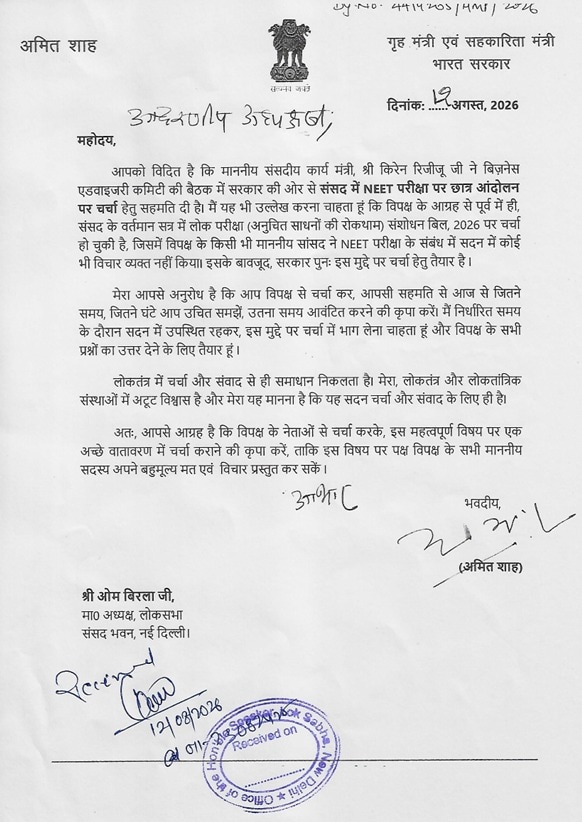 Dy. No. 4414205/HMP/2026
अमित शाह
सत्यमेव जयते
गृह मंत्री एवं सहकारिता मंत्री
भारत सरकार
दिनांक: 12 अगस्त, 2026
आदरणीय अध्यक्षजी,
महोदय,
आपको विदित है कि माननीय संसदीय कार्य मंत्री, श्री किरेन रिजिजू जी ने बिज़नेस
एडवाइजरी कमिटी की बैठक में सरकार की ओर से संसद में NEET परीक्षा पर छात्र आंदोलन
पर चर्चा हेतु सहमति दी है। मैं यह भी उल्लेख करना चाहता हूं कि विपक्ष के आग्रह से पूर्व में ही,
संसद के वर्तमान सत्र में लोक परीक्षा (अनुचित साधनों की रोकथाम) संशोधन बिल, 2026 पर चर्चा
हो चुकी है, जिसमें विपक्ष के किसी भी माननीय सांसद ने NEET परीक्षा के संबंध में सदन में कोई
भी विचार व्यक्त नहीं किया। इसके बावजूद, सरकार पुनः इस मुद्दे पर चर्चा हेतु तैयार है ।
मेरा आपसे अनुरोध है कि आप विपक्ष से चर्चा कर, आपसी सहमति से आज से जितने
समय, जितने घंटे आप उचित समझें, उतना समय आवंटित करने की कृपा करें। मैं निर्धारित समय
के दौरान सदन में उपस्थित रहकर, इस मुद्दे पर चर्चा में भाग लेना चाहता हूं और विपक्ष के सभी
प्रश्नों का उत्तर देने के लिए तैयार हूं ।
लोकतंत्र में चर्चा और संवाद से ही समाधान निकलता है। मेरा, लोकतंत्र और लोकतांत्रिक
संस्थाओं में अटूट विश्वास है और मेरा यह मानना है कि यह सदन चर्चा और संवाद के लिए ही है।
अतः, आपसे आग्रह है कि विपक्ष के नेताओं से चर्चा करके, इस महत्वपूर्ण विषय पर एक
अच्छे वातावरण में चर्चा कराने की कृपा करें, ताकि इस विषय पर पक्ष विपक्ष के सभी माननीय
सदस्य अपने बहुमूल्य मत एवं विचार प्रस्तुत कर सकें ।
आभार
भवदीय,
(अमित शाह)
श्री ओम बिरला जी,
मा0 अध्यक्ष, लोकसभा
संसद भवन, नई दिल्ली।
Received
12/08/2026
Office of the Hon'ble Speaker, Lok Sabha, New Delhi
Received on